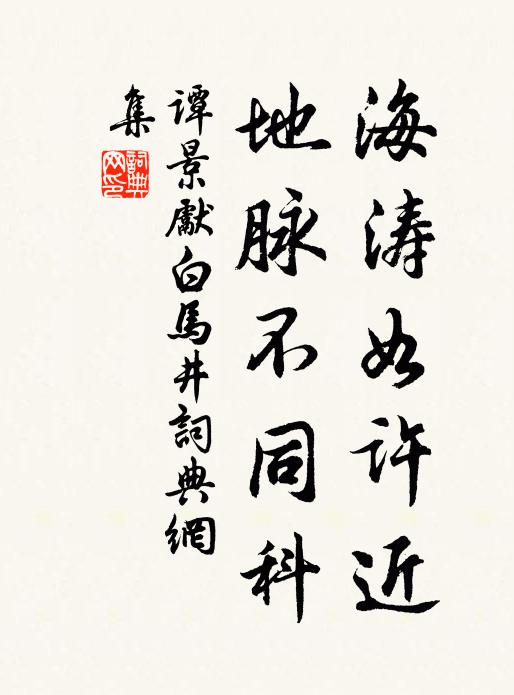 海涛如许近
地脉不同科
谭景獻白馬井詞典網
集
詞典网印